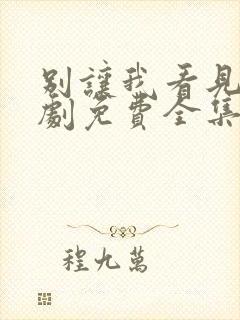 别讓我看見
劇免費全集
程九萬